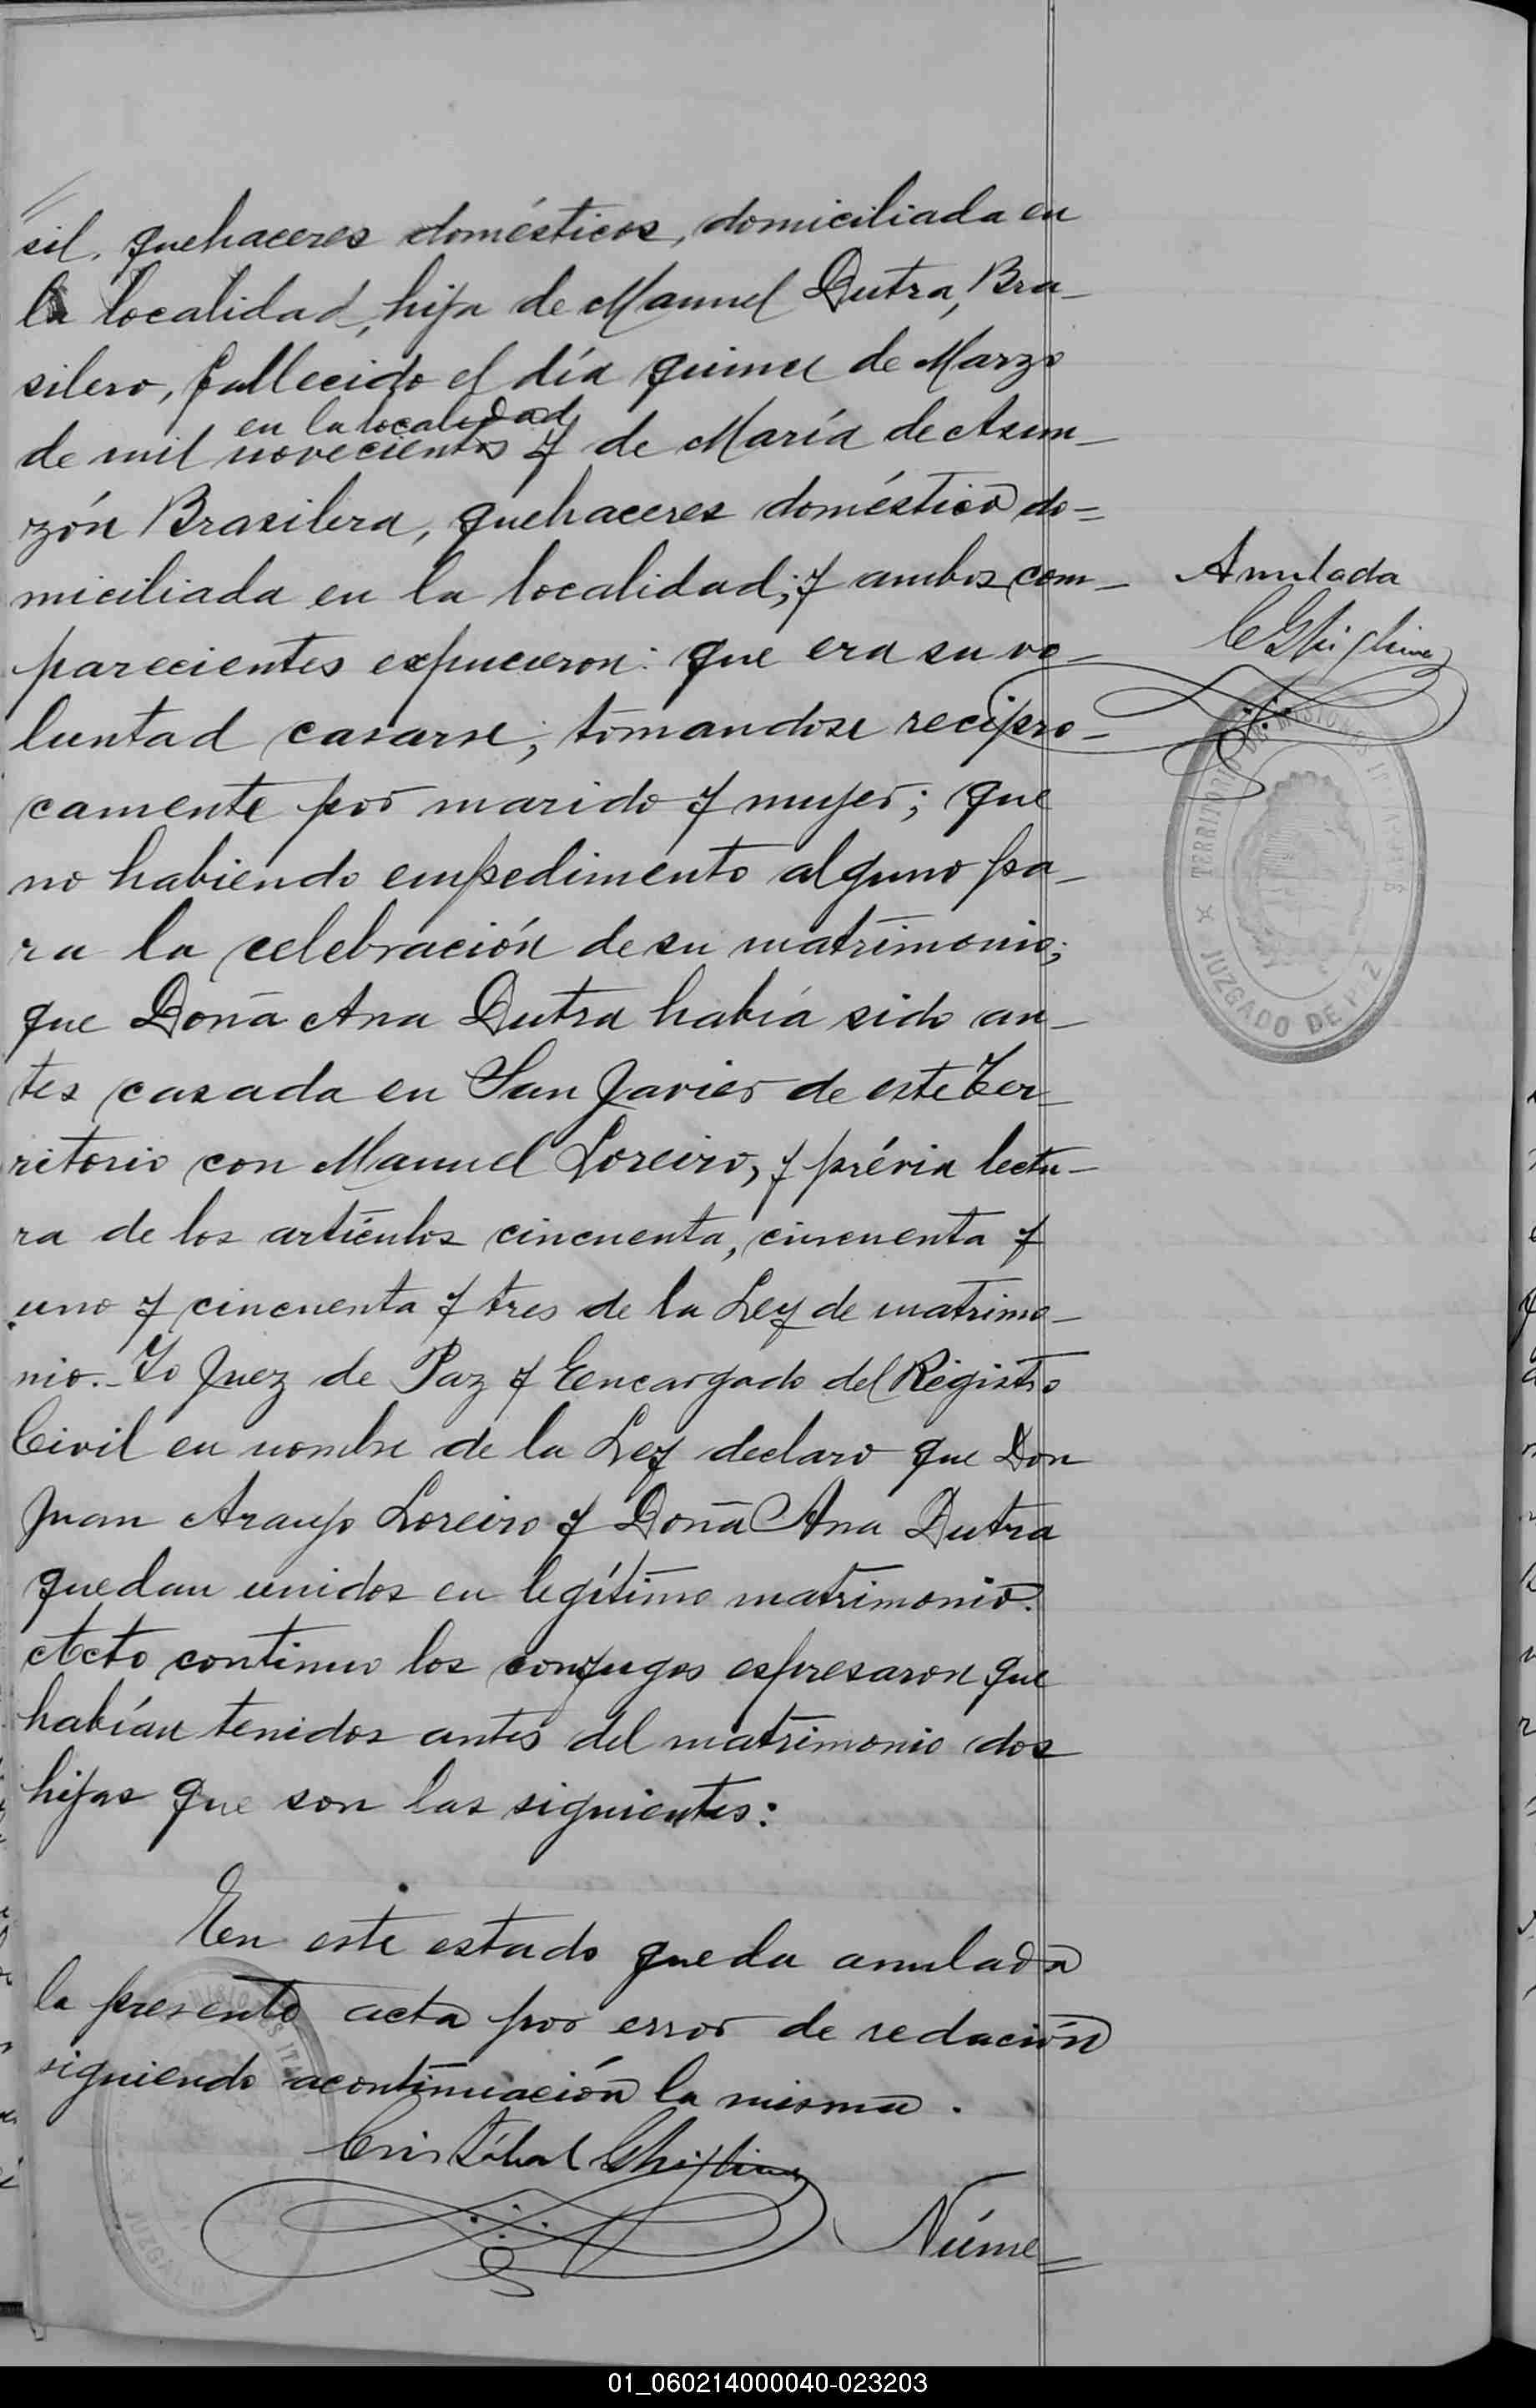 sil, quehaceres domésticos, domiciliada en
la localidad, hija de Manuel Dutra, Bra-
silero, fallecido el día quince de Marzo
en la localidad
de mil novecientos y de María de Asun-
zón Brasilera, quehaceres doméstico do=
miciliada en la localidad; y ambos com-
parecientes expucieron: que era su vo-
luntad casarse; tomandose recipro-
camente por marido y mujer; que
no habiendo empedimento alguno pa-
ra la celebración de su matrimonio;
que Doña Ana Dutra había sido an-
tes casada en San Javier de este Ter-
ritorio con Manuel Loreiro, y prévia lectu-
ra de los artículos cincuenta, cincuenta y
uno y cincuenta y tres de la Ley de matrimo-
nio.- Yo Juez de Paz y Encargado del Registro
Civil en nombre de la Ley declaro que Don
Juan Araujo Loreiro y Doña Ana Dutra
quedan unidos en legítimo matrimonio.
Acto continuo los conyugos espresaron que
habían tenidos antes del matrimonio dos
hijas que son las siguientes:
En este estado queda anulada
la presente acta por error de redación
siguiendo acontinuación la misma.
Cristóbal
Núme=
Anulada
TERRITORIO DE MISIONES
JUZGADO DE PAZ
01_060214000040-023203